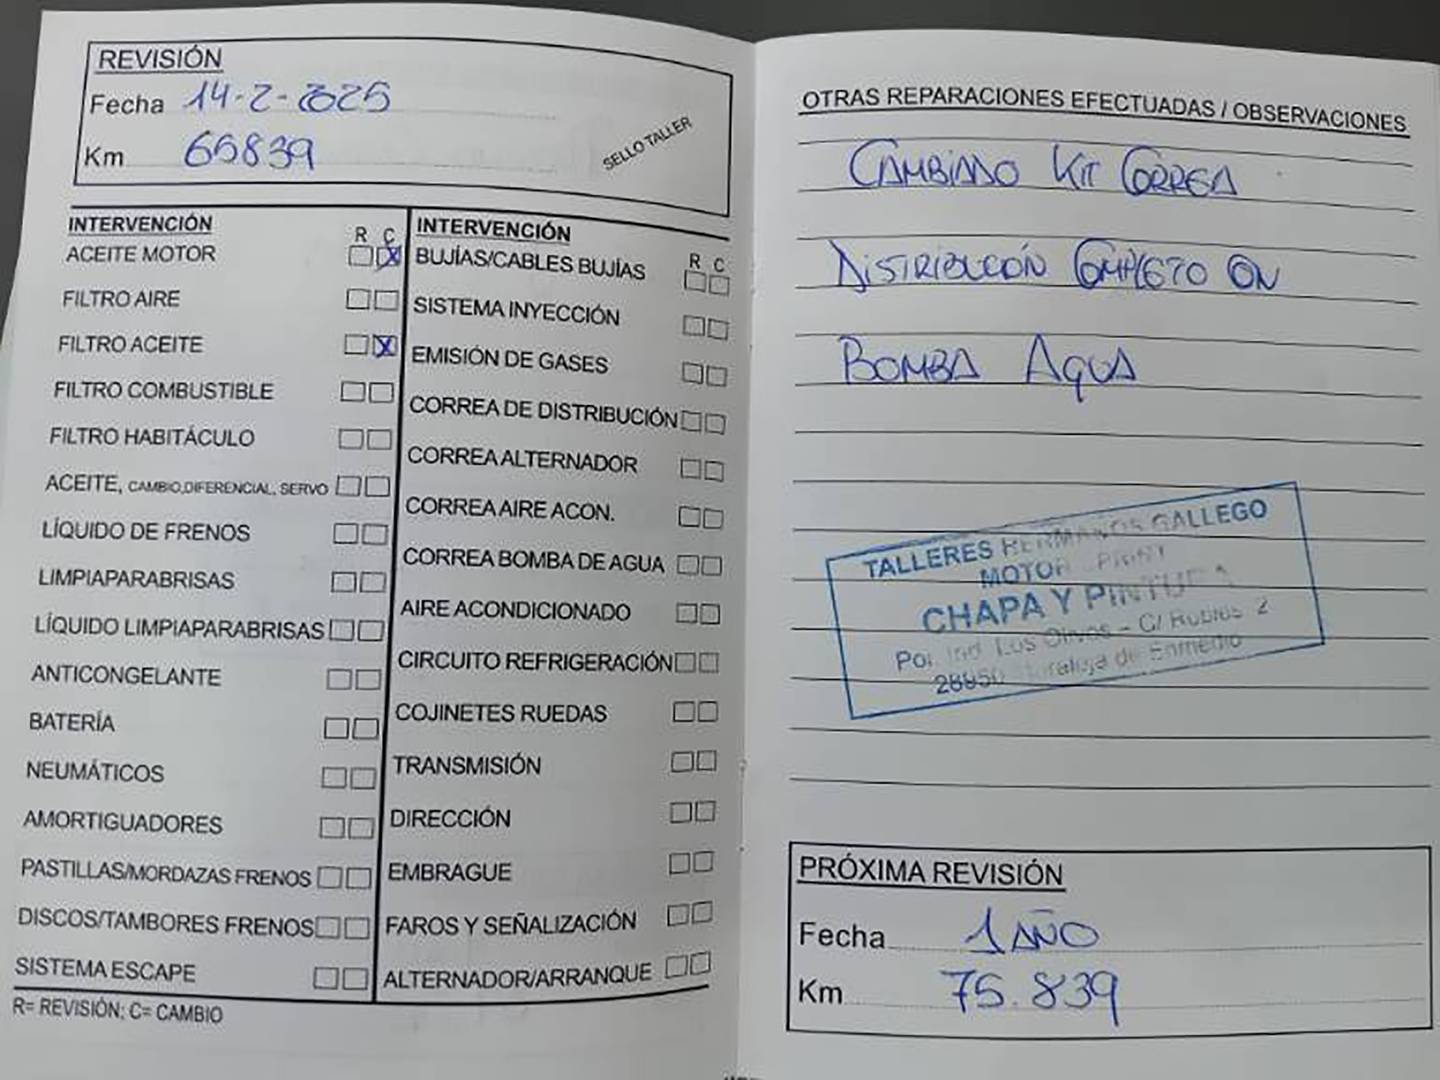 REVISIÓN
Fecha 14-2-2025
Km 65839
SELLO TALLER
INTERVENCIÓN R C
ACEITE MOTOR
FILTRO AIRE
FILTRO ACEITE
FILTRO COMBUSTIBLE
FILTRO HABITÁCULO
ACEITE, CAMBIO,DIFERENCIAL, SERVO
LÍQUIDO DE FRENOS
LIMPIAPARABRISAS
LÍQUIDO LIMPIAPARABRISAS
ANTICONGELANTE
BATERÍA
NEUMÁTICOS
AMORTIGUADORES
PASTILLAS/MORDAZAS FRENOS
DISCOS/TAMBORES FRENOS
SISTEMA ESCAPE
R= REVISIÓN; C= CAMBIO
INTERVENCIÓN R C
BUJÍAS/CABLES BUJÍAS
SISTEMA INYECCIÓN
EMISIÓN DE GASES
CORREA DE DISTRIBUCIÓN
CORREA ALTERNADOR
CORREA AIRE ACON.
CORREA BOMBA DE AGUA
AIRE ACONDICIONADO
CIRCUITO REFRIGERACIÓN
COJINETES RUEDAS
TRANSMISIÓN
DIRECCIÓN
EMBRAGUE
FAROS Y SEÑALIZACIÓN
ALTERNADOR/ARRANQUE
OTRAS REPARACIONES EFECTUADAS / OBSERVACIONES
CAMBIADO KIT CORREA
DISTRIBUCIÓN COMPLETO CON
BOMBA AGUA
TALLERES HERMANOS GALLEGO
MOTOR
CHAPA Y PINTURA
Pol. Ind. Los Olivos - C/ Robles 2
28950 Moraleja de Enmedio
PRÓXIMA REVISIÓN
Fecha 1 AÑO
Km 75.839